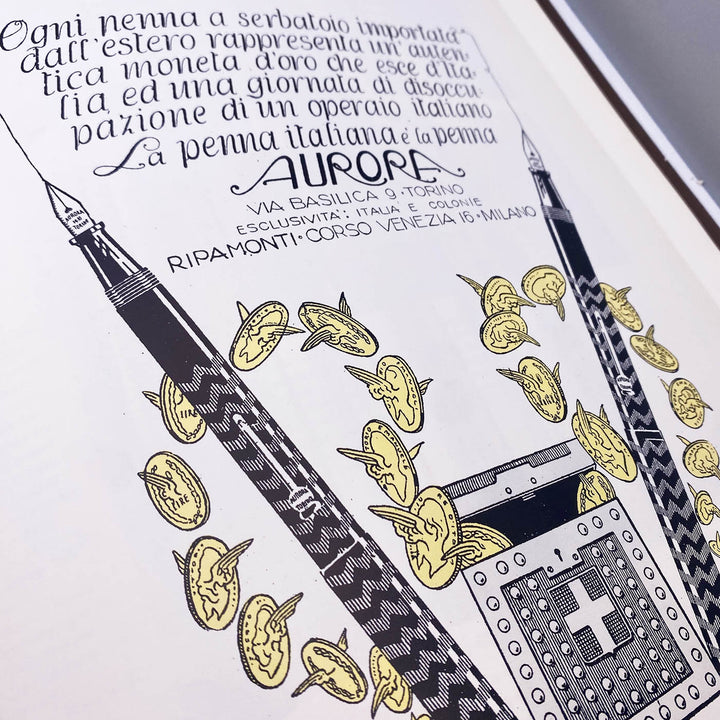 Ogni penna a serbatoio importata
dall'estero rappresenta un'auten-
tica moneta d'oro che esce d'Ita-
lia ed una giornata di disoccu-
pazione di un operaio italiano
La penna italiana è la penna
AURORA
VIA BASILICA 9 · TORINO
ESCLUSIVITA': ITALIA E COLONIE
RIPAMONTI · CORSO VENEZIA 16 · MILANO
AURORA
TORINO
LIRE
LIRE